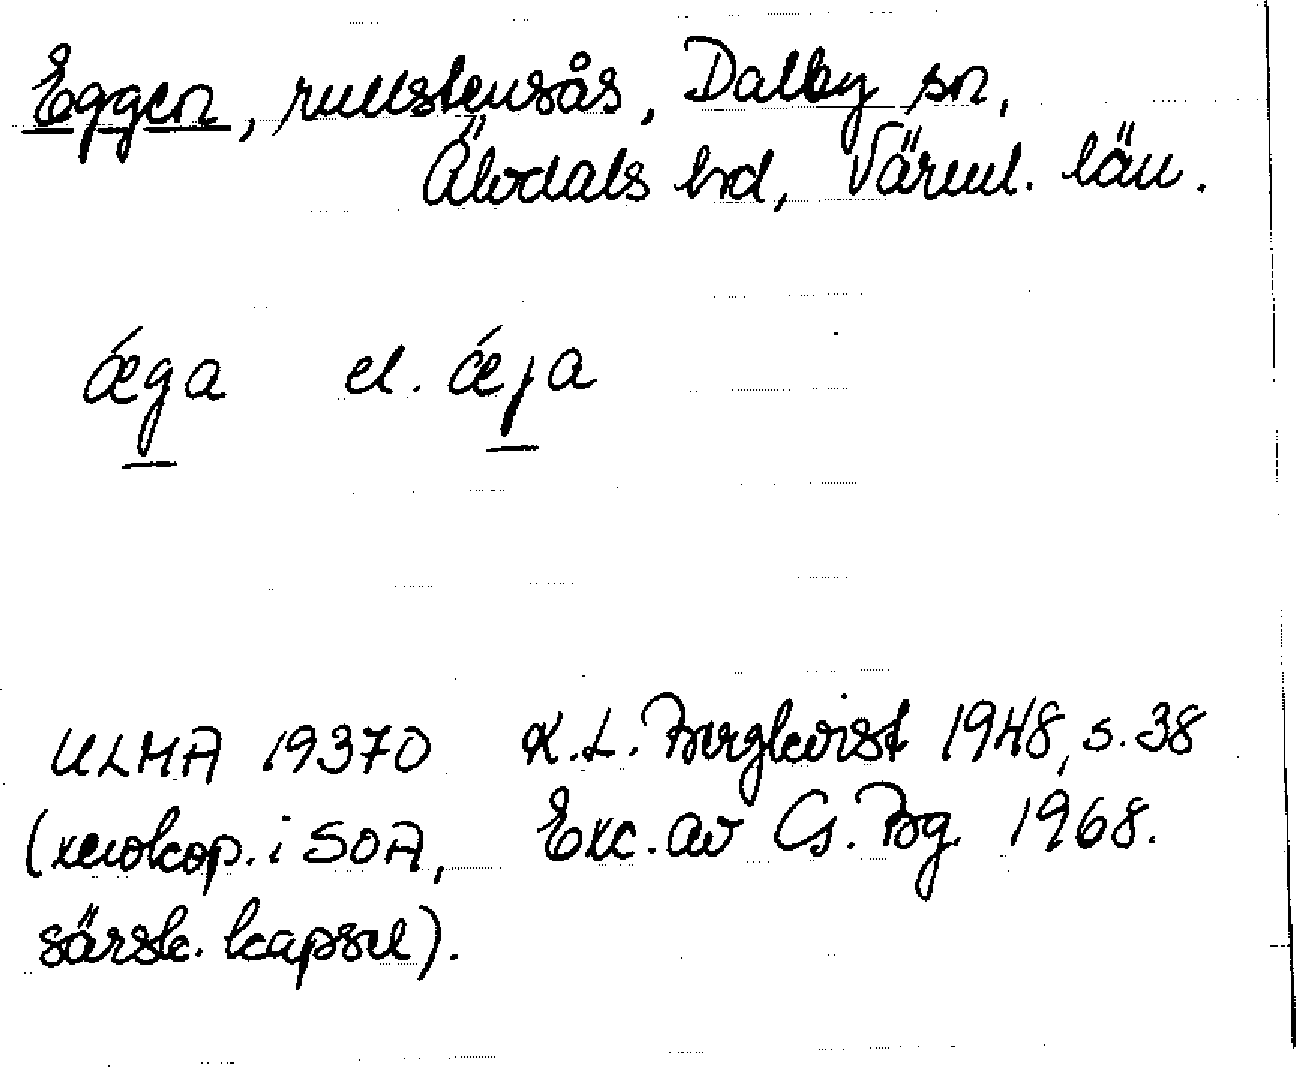 Eggen, rullstensås, Dalby sn,
Älvdals hd, Värml. län.
ǽga el. ǽja
ULMA 19370 K.L. Bergkvist 1948, s. 38
(xerokop. i SOA, Exc. av G. Bg. 1968.
särsk. kapsel).